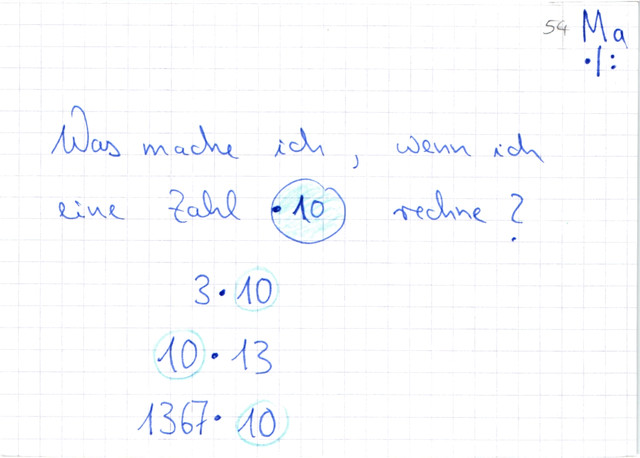 54 Ma
·/:
Was mache ich, wenn ich
eine Zahl ·10 rechne?
3·10
10·13
1367·10